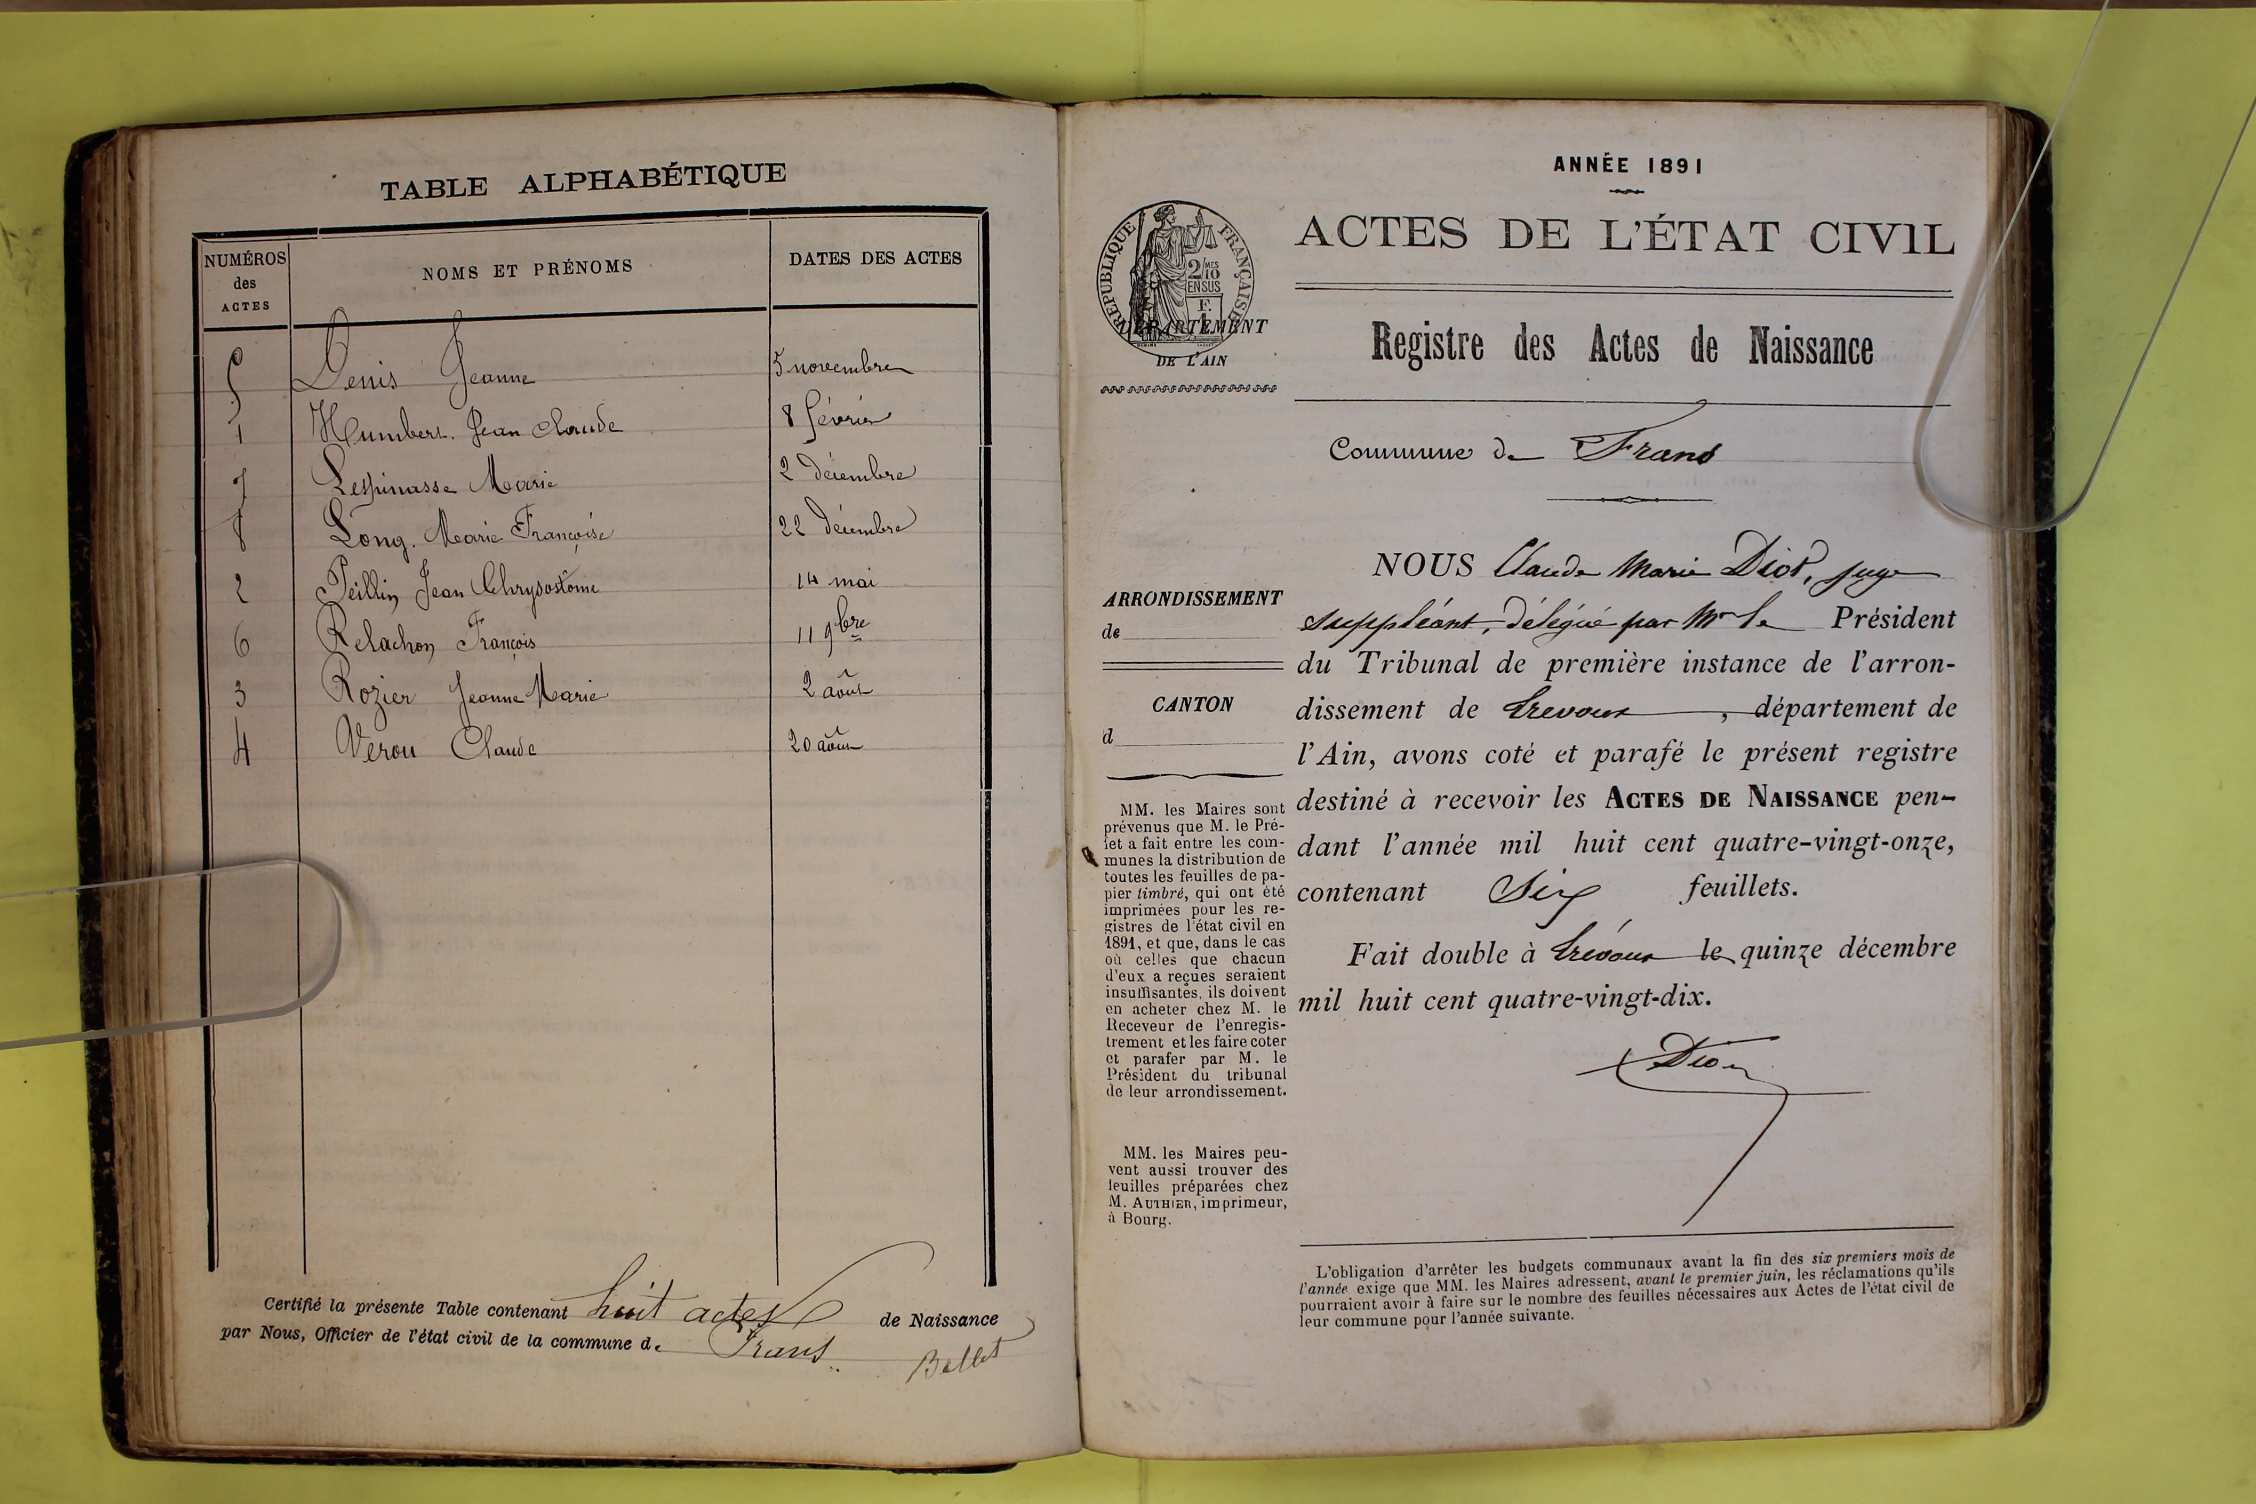 TABLE ALPHABÉTIQUE
NUMÉROS des ACTES
NOMS ET PRÉNOMS
DATES DES ACTES
5 Denis Jeanne 5 novembre
1 Humbert Jean Claude 8 février
7 Lespinasse Marie 2 décembre
8 Long. Marie Françoise 22 décembre
2 Peillin Jean Chrysostôme 14 mai
6 Relachon François 11 9bre
3 Rozier Jeanne Marie 2 août
4 Verou Claude 20 août
Certifié la présente Table contenant huit actes de Naissance
par Nous, Officier de l'état civil de la commune de Frans
Bellet
ANNÉE 1891
ACTES DE L'ÉTAT CIVIL
RÉPUBLIQUE FRANÇAISE
2/10 MES
EN SUS
DÉPARTEMENT
DE L'AIN
Registre des Actes de Naissance
Commune de Frans
ARRONDISSEMENT
de
CANTON
d
MM. les Maires sont
prévenus que M. le Pré-
fet a fait entre les com-
munes la distribution de
toutes les feuilles de pa-
pier timbré, qui ont été
imprimées pour les re-
gistres de l'état civil en
1891, et que, dans le cas
où celles que chacun
d'eux a reçues seraient
insuffisantes, ils doivent
en acheter chez M. le
Receveur de l'enregis-
trement et les faire coter
et parafer par M. le
Président du tribunal
de leur arrondissement.
MM. les Maires peu-
vent aussi trouver des
feuilles préparées chez
M. AUTHIER, imprimeur,
à Bourg.
NOUS Claude Marie Diot, juge
suppléant, délégué par Mr le Président
du Tribunal de première instance de l'arron-
dissement de Trevoux, département de
l'Ain, avons coté et parafé le présent registre
destiné à recevoir les ACTES DE NAISSANCE pen-
dant l'année mil huit cent quatre-vingt-onze,
contenant Six feuillets.
Fait double à Trévoux le quinze décembre
mil huit cent quatre-vingt-dix.
Diot
L'obligation d'arrêter les budgets communaux avant la fin des six premiers mois de
l'année exige que MM. les Maires adressent, avant le premier juin, les réclamations qu'ils
pourraient avoir à faire sur le nombre des feuilles nécessaires aux Actes de l'état civil de
leur commune pour l'année suivante.